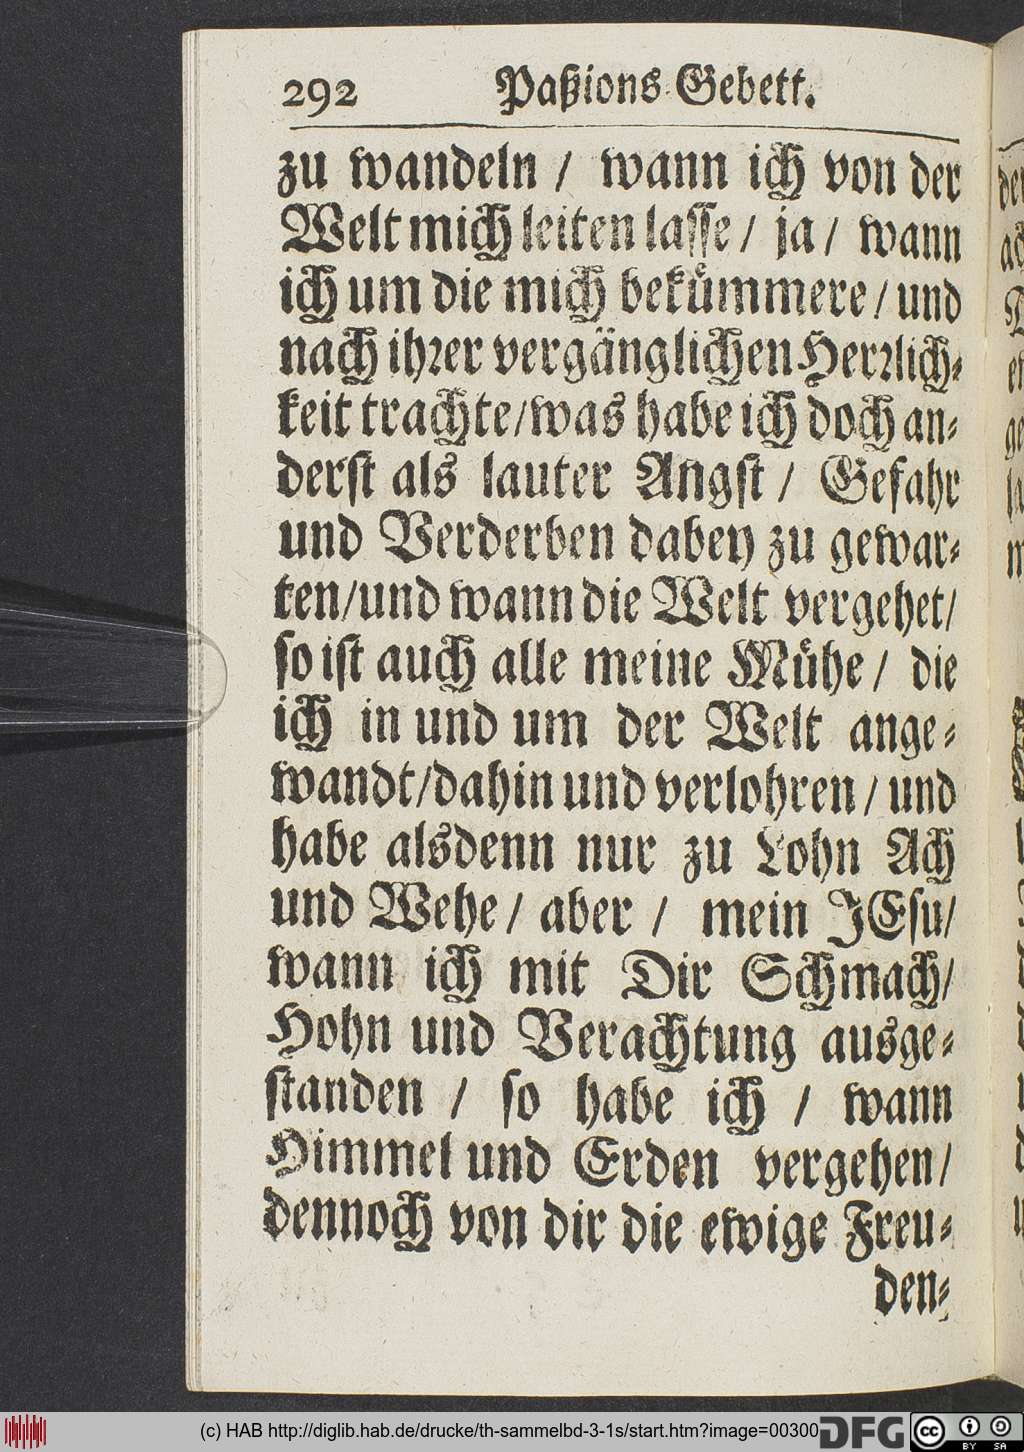 292 Paßions Gebett.
zu wandeln / wann ich von der
Welt mich leiten lasse / ja / wann
ich um die mich bekümmere / und
nach ihrer vergänglichen Herrlich-
keit trachte / was habe ich doch an-
derst als lauter Angst / Gefahr
und Verderben dabey zu gewar-
ten / und wann die Welt vergehet /
so ist auch alle meine Mühe / die
ich in und um der Welt ange-
wandt / dahin und verlohren / und
habe alsdenn nur zu Lohn Ach
und Wehe / aber / mein JEsu /
wann ich mit Dir Schmach /
Hohn und Verachtung ausge-
standen / so habe ich / wann
Himmel und Erden vergehen /
dennoch von dir die ewige Freu-
den-
(c) HAB http://diglib.hab.de/drucke/th-sammelbd-3-1s/start.htm?image=00300
DFG
cc BY SA